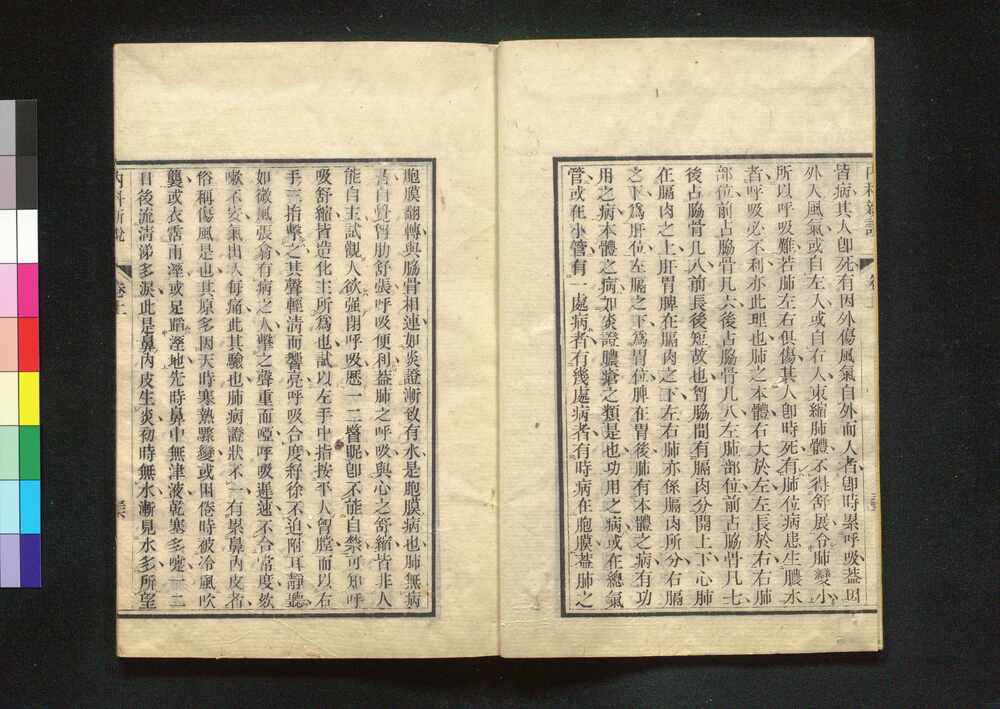 內科新說
卷上
皆病其人卽死有因外傷風氣自外而入者卽時累呼吸蓋因
外入風氣或自左入或自右入束縮肺體不得舒展令肺變小
所以呼吸難若肺左右俱傷其人卽時死有肺位病患生膿水
者呼吸必不利亦此理也肺之本體右大於左左長於右右肺
部位前占脇骨凡六後占脇骨凡八左肺部位前占脇骨凡七
後占脇骨凡八前長後短故也胷脇間有膈肉分開上下心肺
在膈肉之上肝胃脾在膈肉之下左右肺亦係膈肉所分右膈
之下爲肝位左膈之下爲胃位脾在胃後肺有本體之病有功
用之病本體之病如炎證膿瘡之類是也功用之病或在總氣
管或在小管有一處病者有幾處病者有時病在胞膜蓋肺之
胞膜翻轉與脇骨相連如炎證漸致有水是胞膜病也肺無病
者自覺胷肋舒張呼吸便利蓋肺之呼吸與心之舒縮皆非人
能自主試觀人欲强閉呼吸歷一二瞀眠卽不能自禁可知呼
吸舒縮皆造化主所爲也試以左手中指按平人胷膛而以右
手三指擊之其聲輕淸而響亮呼吸合度紓徐不迫附耳靜聽
如微風張翕有病之人擊之聲重而啞呼吸遲速不合常度欬
嗽不安氣出入每痛此其驗也肺病證狀不一有累鼻內皮者
俗稱傷風是也其原多因天時寒熱驟變或困倦時被冷風吹
襲或衣霑雨溼或足踏溼地先時鼻中無津液乾塞多嚏一二
日後流淸涕多淚此是鼻內皮生炎初時無水漸見水多所望
內科新說
卷上